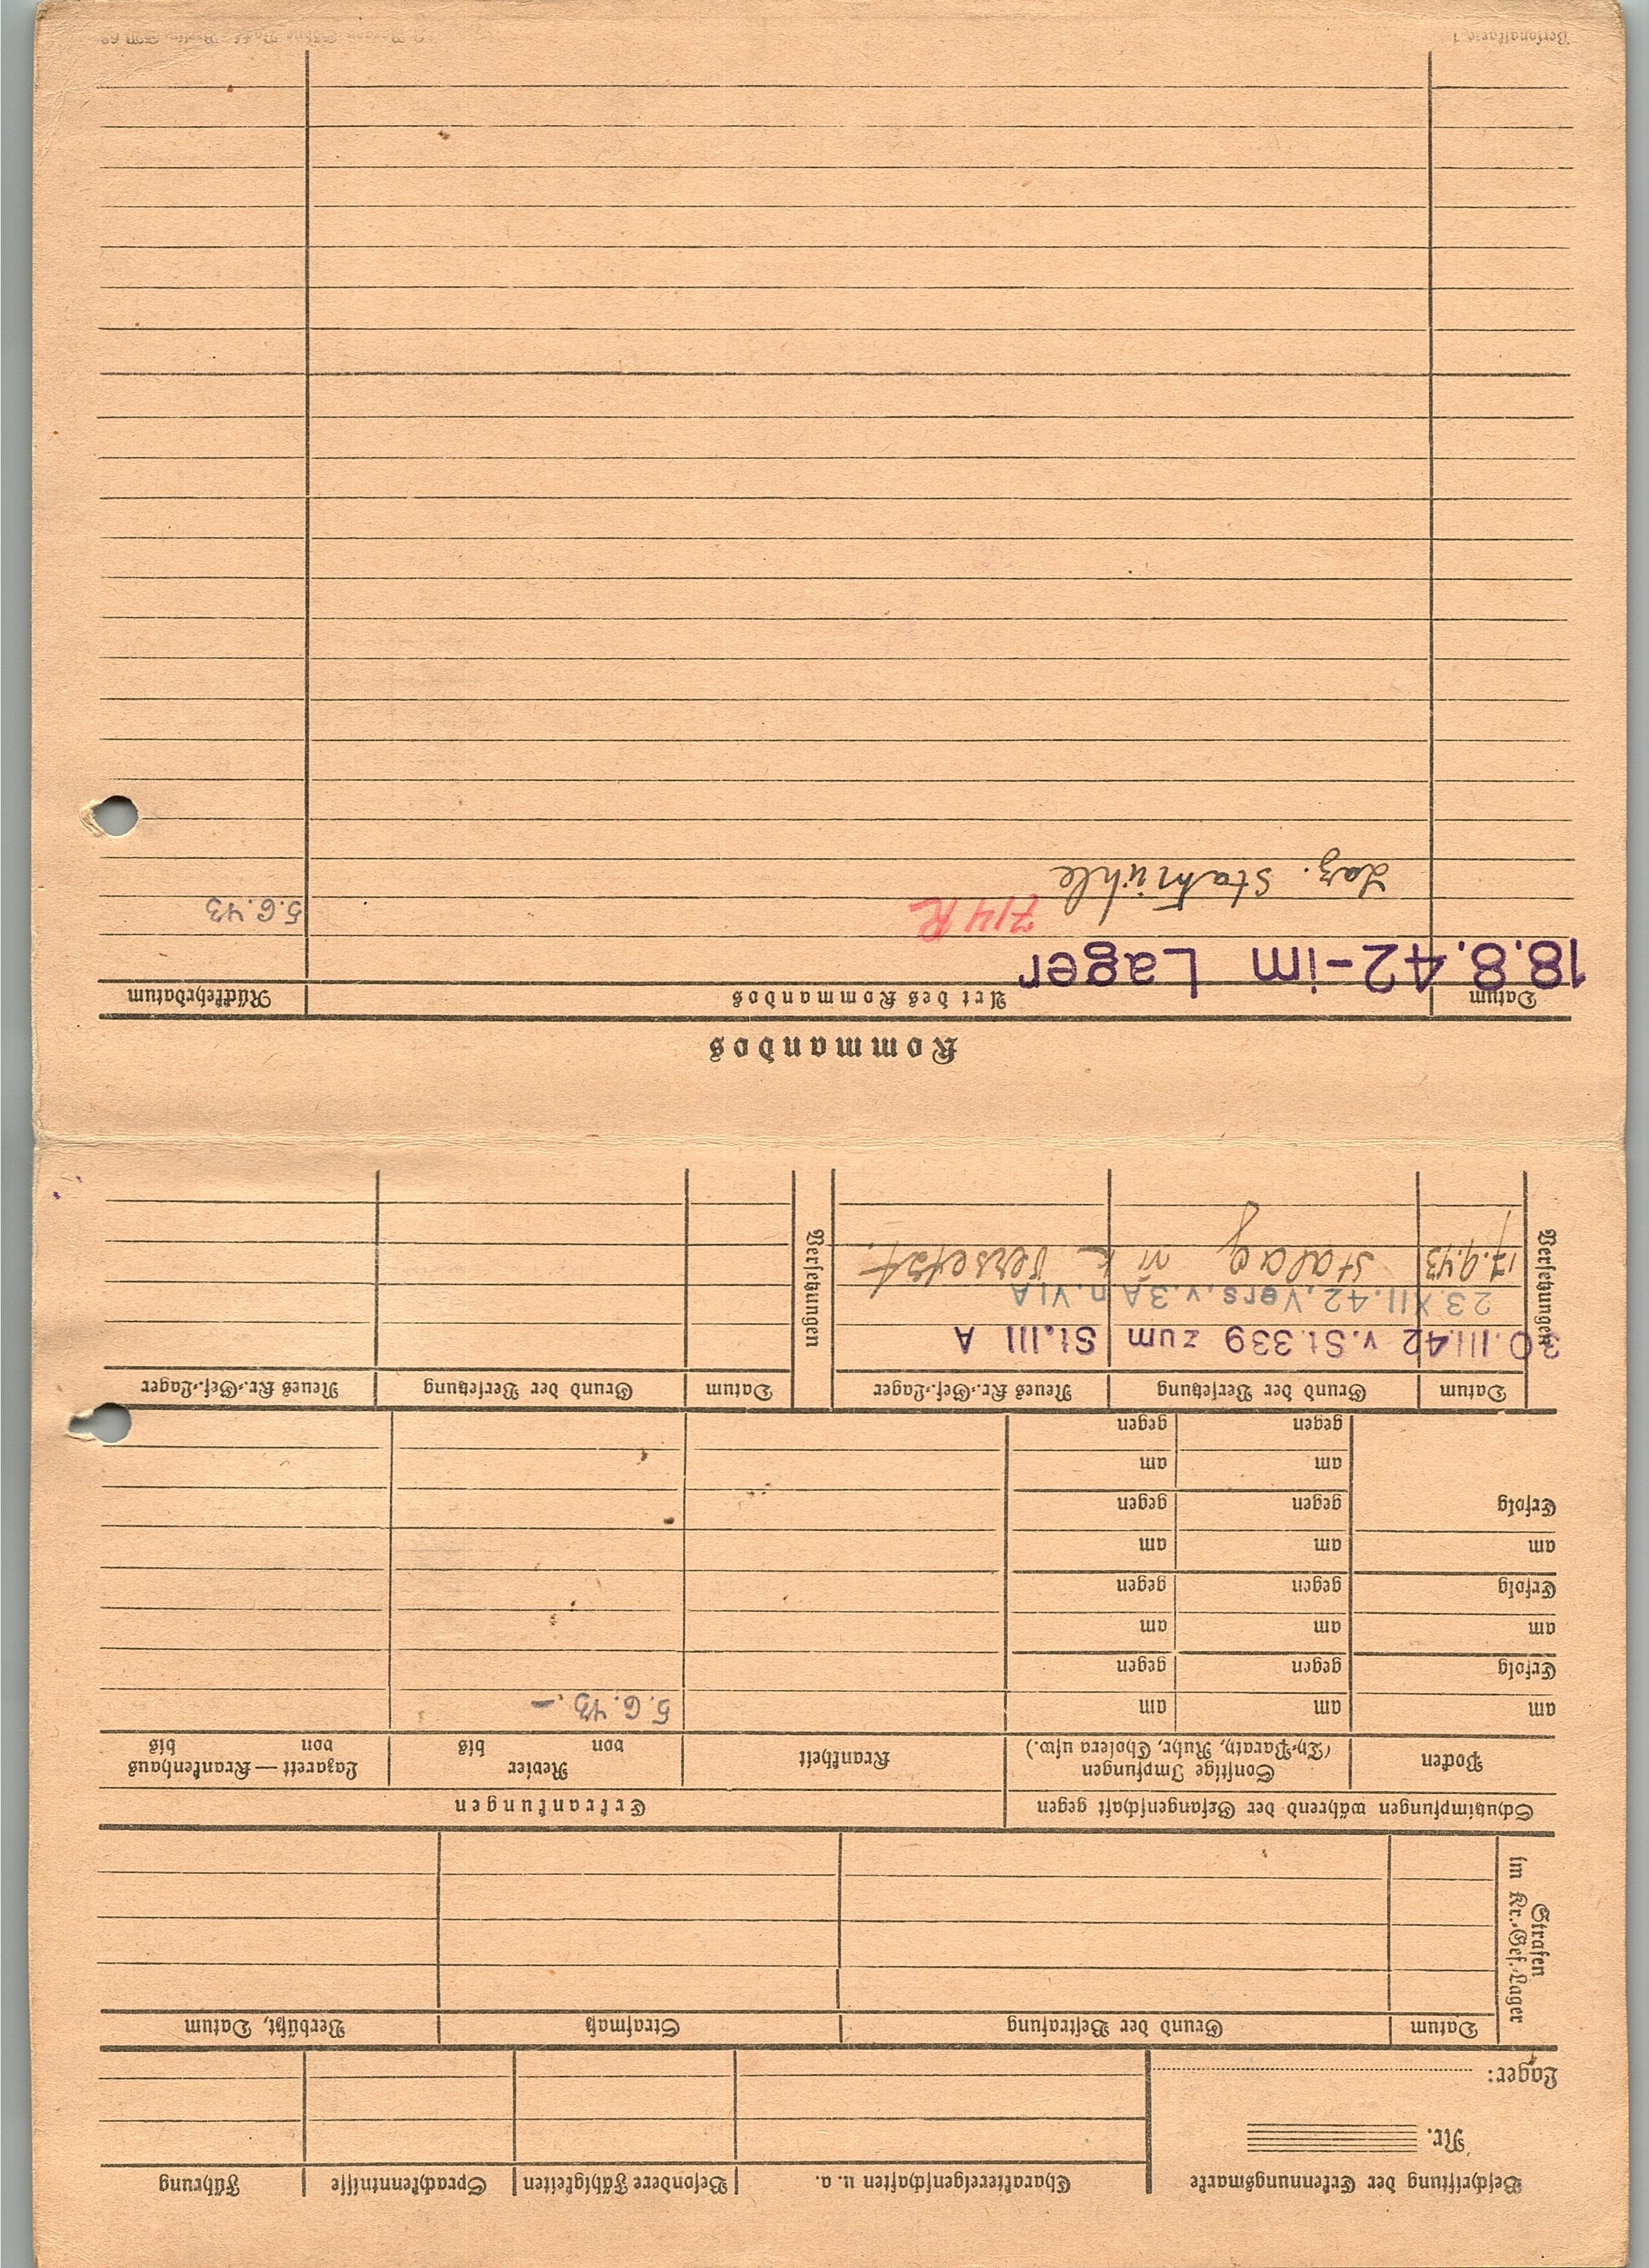 Beschriftung der Erkennungsmarke
Nr.
Lager:
Charaktereigenschaften u. a.
Besondere Fähigkeiten
Sprachkenntnisse
Führung
Strafen
im Kr.-Gef.-Lager
Datum
Grund der Bestrafung
Strafmaß
Verbüßt, Datum
Schutzimpfungen während der Gefangenschaft gegen
Erkrankungen
Pocken
Sonstige Impfungen
(Ty-Paraty, Ruhr, Cholera usw.)
Krankheit
Revier
von bis
Lazarett — Krankenhaus
von bis
am am am 5.6.43.-
Erfolg gegen gegen
am am am
Erfolg gegen gegen
am am am
Erfolg gegen gegen
am am
gegen gegen
Versetzungen
Datum
Grund der Versetzung
Neues Kr.-Gef.-Lager
Versetzungen
Datum
Grund der Versetzung
Neues Kr.-Gef.-Lager
30.III.42 v.St.339 zum St.III A
23.XII.42, Vers.v.3A n.VIA
17.9.43 Stalag VI K versetzt.
Kommandos
Datum
Art des Kommandos
Rückkehrdatum
18.8.42-im Lager
714 R
5.6.43
Laz. Staumühle
Personalkarte I